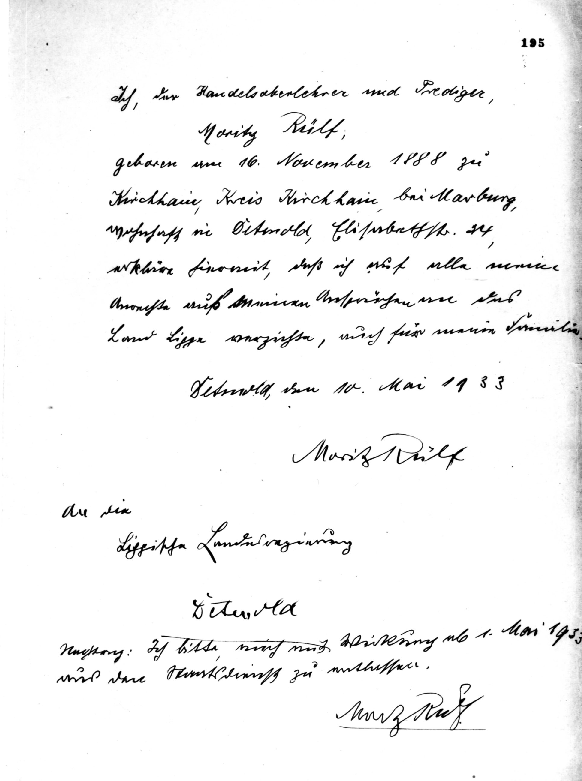 195
Ich, der Handelsoberlehrer und Prediger,
Moritz Rülf,
geboren am 16. November 1888 zu
Kirchhain, Kreis Kirchhain, bei Marburg,
wohnhaft in Detmold, Elisabethstr. 24,
erkläre hiermit, daß ich auf alle meine
Anrechte aus meinen Ansprüchen an das
Land Lippe verzichte, auch für meine Familie.
Detmold, den 10. Mai 1933
Moritz Rülf
An die
Lippische Landesregierung
Detmold
Nachtrag: Ich bitte, mich mit Wirkung ab 1. Mai 1933
aus dem Staatsdienst zu entlassen.
Moritz Rülf